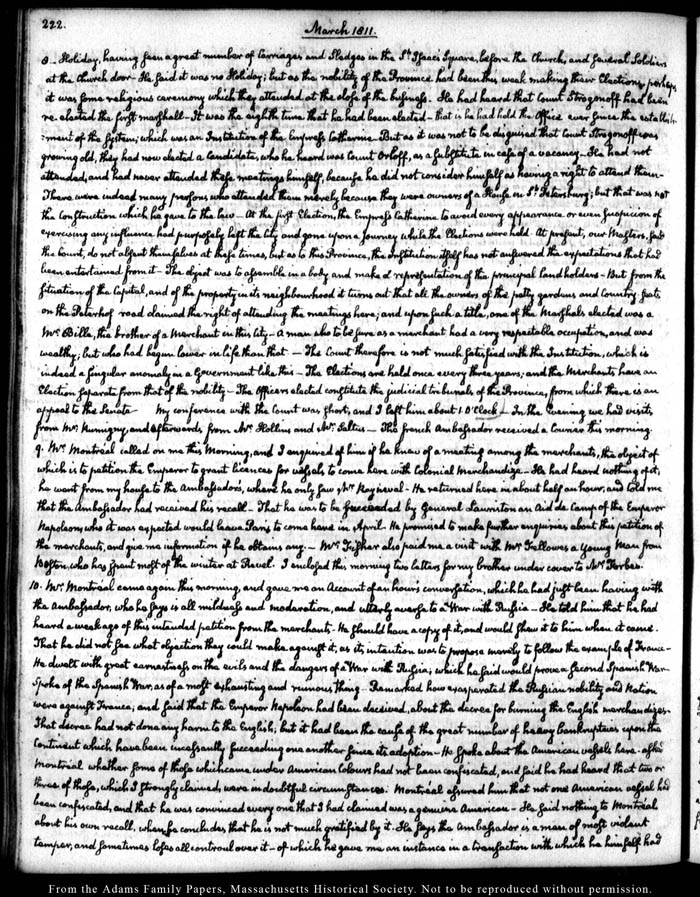 222.
March 1811.
8.- Holiday, having seen a great number of Carriages and Sledges in the St. Isaac's Square, before the Church, and several Soldiers
at the Church door- He said it was no Holiday; but as the nobility of the Province had been this week making their Elections, perhaps
it was some religious ceremony which they attended at the close of the business. He had heard that Count Strogonoff had been
re-elected the first marshall- It was the eighth time that he had been elected- that is he had held the Office ever since the establish-
ment of the System, which was an Institution of the Empress Catherine- But as it was not to be disguised that Count Strogonoff was
growing old, they had now elected a Candidate, who he heard was Count Orloff, as a substitute in case of a vacancy- He had not
attended, and had never attended these meetings himself, because he did not consider himself as having a right to attend them-
There were indeed many persons who attended them merely because they were owners of a House in St. Petersburg; but that was not
the Construction which he gave to the law- At the first Election, the Empress Catherine to avoid every appearance or even suspicion of
exercising any influence had purposely left the City and gone upon a Journey while the Elections were held. At present, our Masters, said
the Count, do not absent themselves at these times, but as to this Province, the Institution itself has not answered the expectations that had
been entertained from it- The object was to assemble in a body and make a representation of the principal land holders- But from the
situation of the Capital, and of the property in its neighbourhood it turns out that all the owners of the petty gardens and Country seats
on the Peterhof road claimed the right of attending the meetings here; and upon such a title, one of the Marshals elected was a
Mr. Bille, the brother of a Merchant in this City- a man who to be sure as a merchant had a very respectable occupation, and was
wealthy; but who had begun lower in life than that- The Count therefore is not much satisfied with the Institution, which is
indeed a singular anomaly in a Government like this- The Elections are held once every three years; and the Merchants have an
Election separate from that of the nobility- The Officers elected constitute the judicial tribunals of the Province, from which there is an
appeal to the Senate- My conference with the Count was short, and I left him about 1. O'Clock- In the Evening we had visits,
from Mr. Rumigny, and afterwards from Mr. Hollins and Mr. Saltus- The french Ambassador received a Courier this morning.
9. Mr. Montréal called on me this Morning, and I enquired of him if he knew of a meeting among the merchants, the object of
which is to petition the Emperor to grant licences for vessels to come here with Colonial Merchandize- He had heard nothing of it;
he went from my house to the Ambassador's, where he only saw Mr. Rayneval- He returned here in about half an hour, and told me
that the Ambassador had received his recall- That he was to be succeeded by General Lauriston an Aid de Camp of the Emperor
Napoleon, who it was expected would leave Paris to come here in April- He promised to make further enquiries about this petition of
the merchants, and give me information if he obtains any.- Mr. Fisher also paid me a visit with Mr. Fellowes a Young Man from
Boston, who has spent most of the winter at Revel. I enclosed this morning two letters for my brother under cover to Mr. Forbes.
10. Mr. Montréal came again this morning, and gave me an Account of an hour's conversation, which he had just been having with
the Ambassador, who he says is all mildness and moderation, and utterly averse to a War with Russia- He told him that he had
heard a week ago of this intended petition from the merchants- He should have a copy of it, and would shew it to him when it came.
That he did not see what objection they could make against it, as its intention was to propose merely to follow the example of France-
He dwelt with great earnestness on the evils and the dangers of a War with Russia; which he said would prove a second Spanish War-
Spoke of the Spanish War, as of a most exhausting and ruinous thing- Remarked how exasperated the Russian nobility and Nation
were against France; and said that the Emperor Napoleon had been deceived, about the decree for burning the English merchandizes.
That decree had not done any harm to the English; but it had been the cause of the great number of heavy bankruptcies upon the
Continent which have been incessantly succeeding one another since its adoption- He spoke about the American vessels here- asked
Montréal whether some of those which came under American Colours had not been confiscated, and said he had heard that two or
three of those, which I strongly claimed, were in doubtful circumstances. Montréal assured him that not one American vessel had
been confiscated, and that he was convinced every one that I had claimed was a genuine American- He said nothing to Montréal
about his own recall, whence he concludes that he is not much gratified by it. He says the Ambassador is a man of most violent
temper, and sometimes loses all controul over it- of which he gave me an instance in a transaction with which he himself had
From the Adams Family Papers, Massachusetts Historical Society. Not to be reproduced without permission.